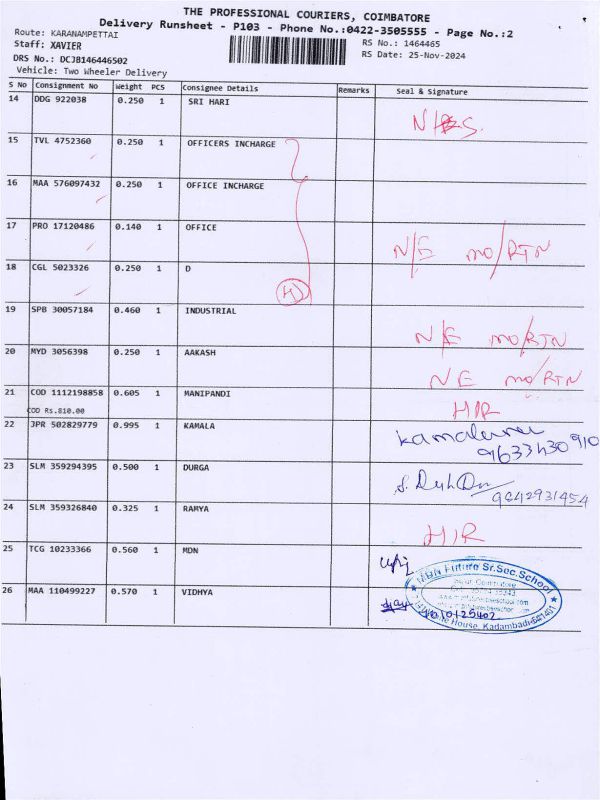 THE PROFESSIONAL COURIERS, COIMBATORE
Delivery Runsheet - P103 - Phone No.:0422-3505555 - Page No.:2
Route: KARANAMPETTAI
RS No.: 1464465
Staff: XAVIER
RS Date: 25-Nov-2024
DRS No.: DCJB146446502
Vehicle: Two Wheeler Delivery
S No Consignment No Weight PCS Consignee Details Remarks Seal & Signature
14 DDG 922038 0.250 1 SRI HARI
15 TVL 4752360 0.250 1 OFFICERS INCHARGE
16 MAA 576097432 0.250 1 OFFICE INCHARGE
17 PRO 17120486 0.140 1 OFFICE N/E mo/RTN
18 CGL 5023326 0.250 1 D
19 SPB 30057184 0.460 1 INDUSTRIAL N/E mo/RTN
20 MYD 3056398 0.250 1 AAKASH N E mo/RTN
21 COD 1112198858 0.605 1 MANIPANDI H/R
COD Rs.810.00
22 JPR 502829779 0.995 1 KAMALA
23 SLM 359294395 0.500 1 DURGA 9842931454
24 SLM 359326840 0.325 1 RAMYA H/R
25 TCG 10233366 0.560 1 MDN
MBN Future Sr.Sec.School
26 MAA 110499227 0.570 1 VIDHYA
House, Kadambadi-641401